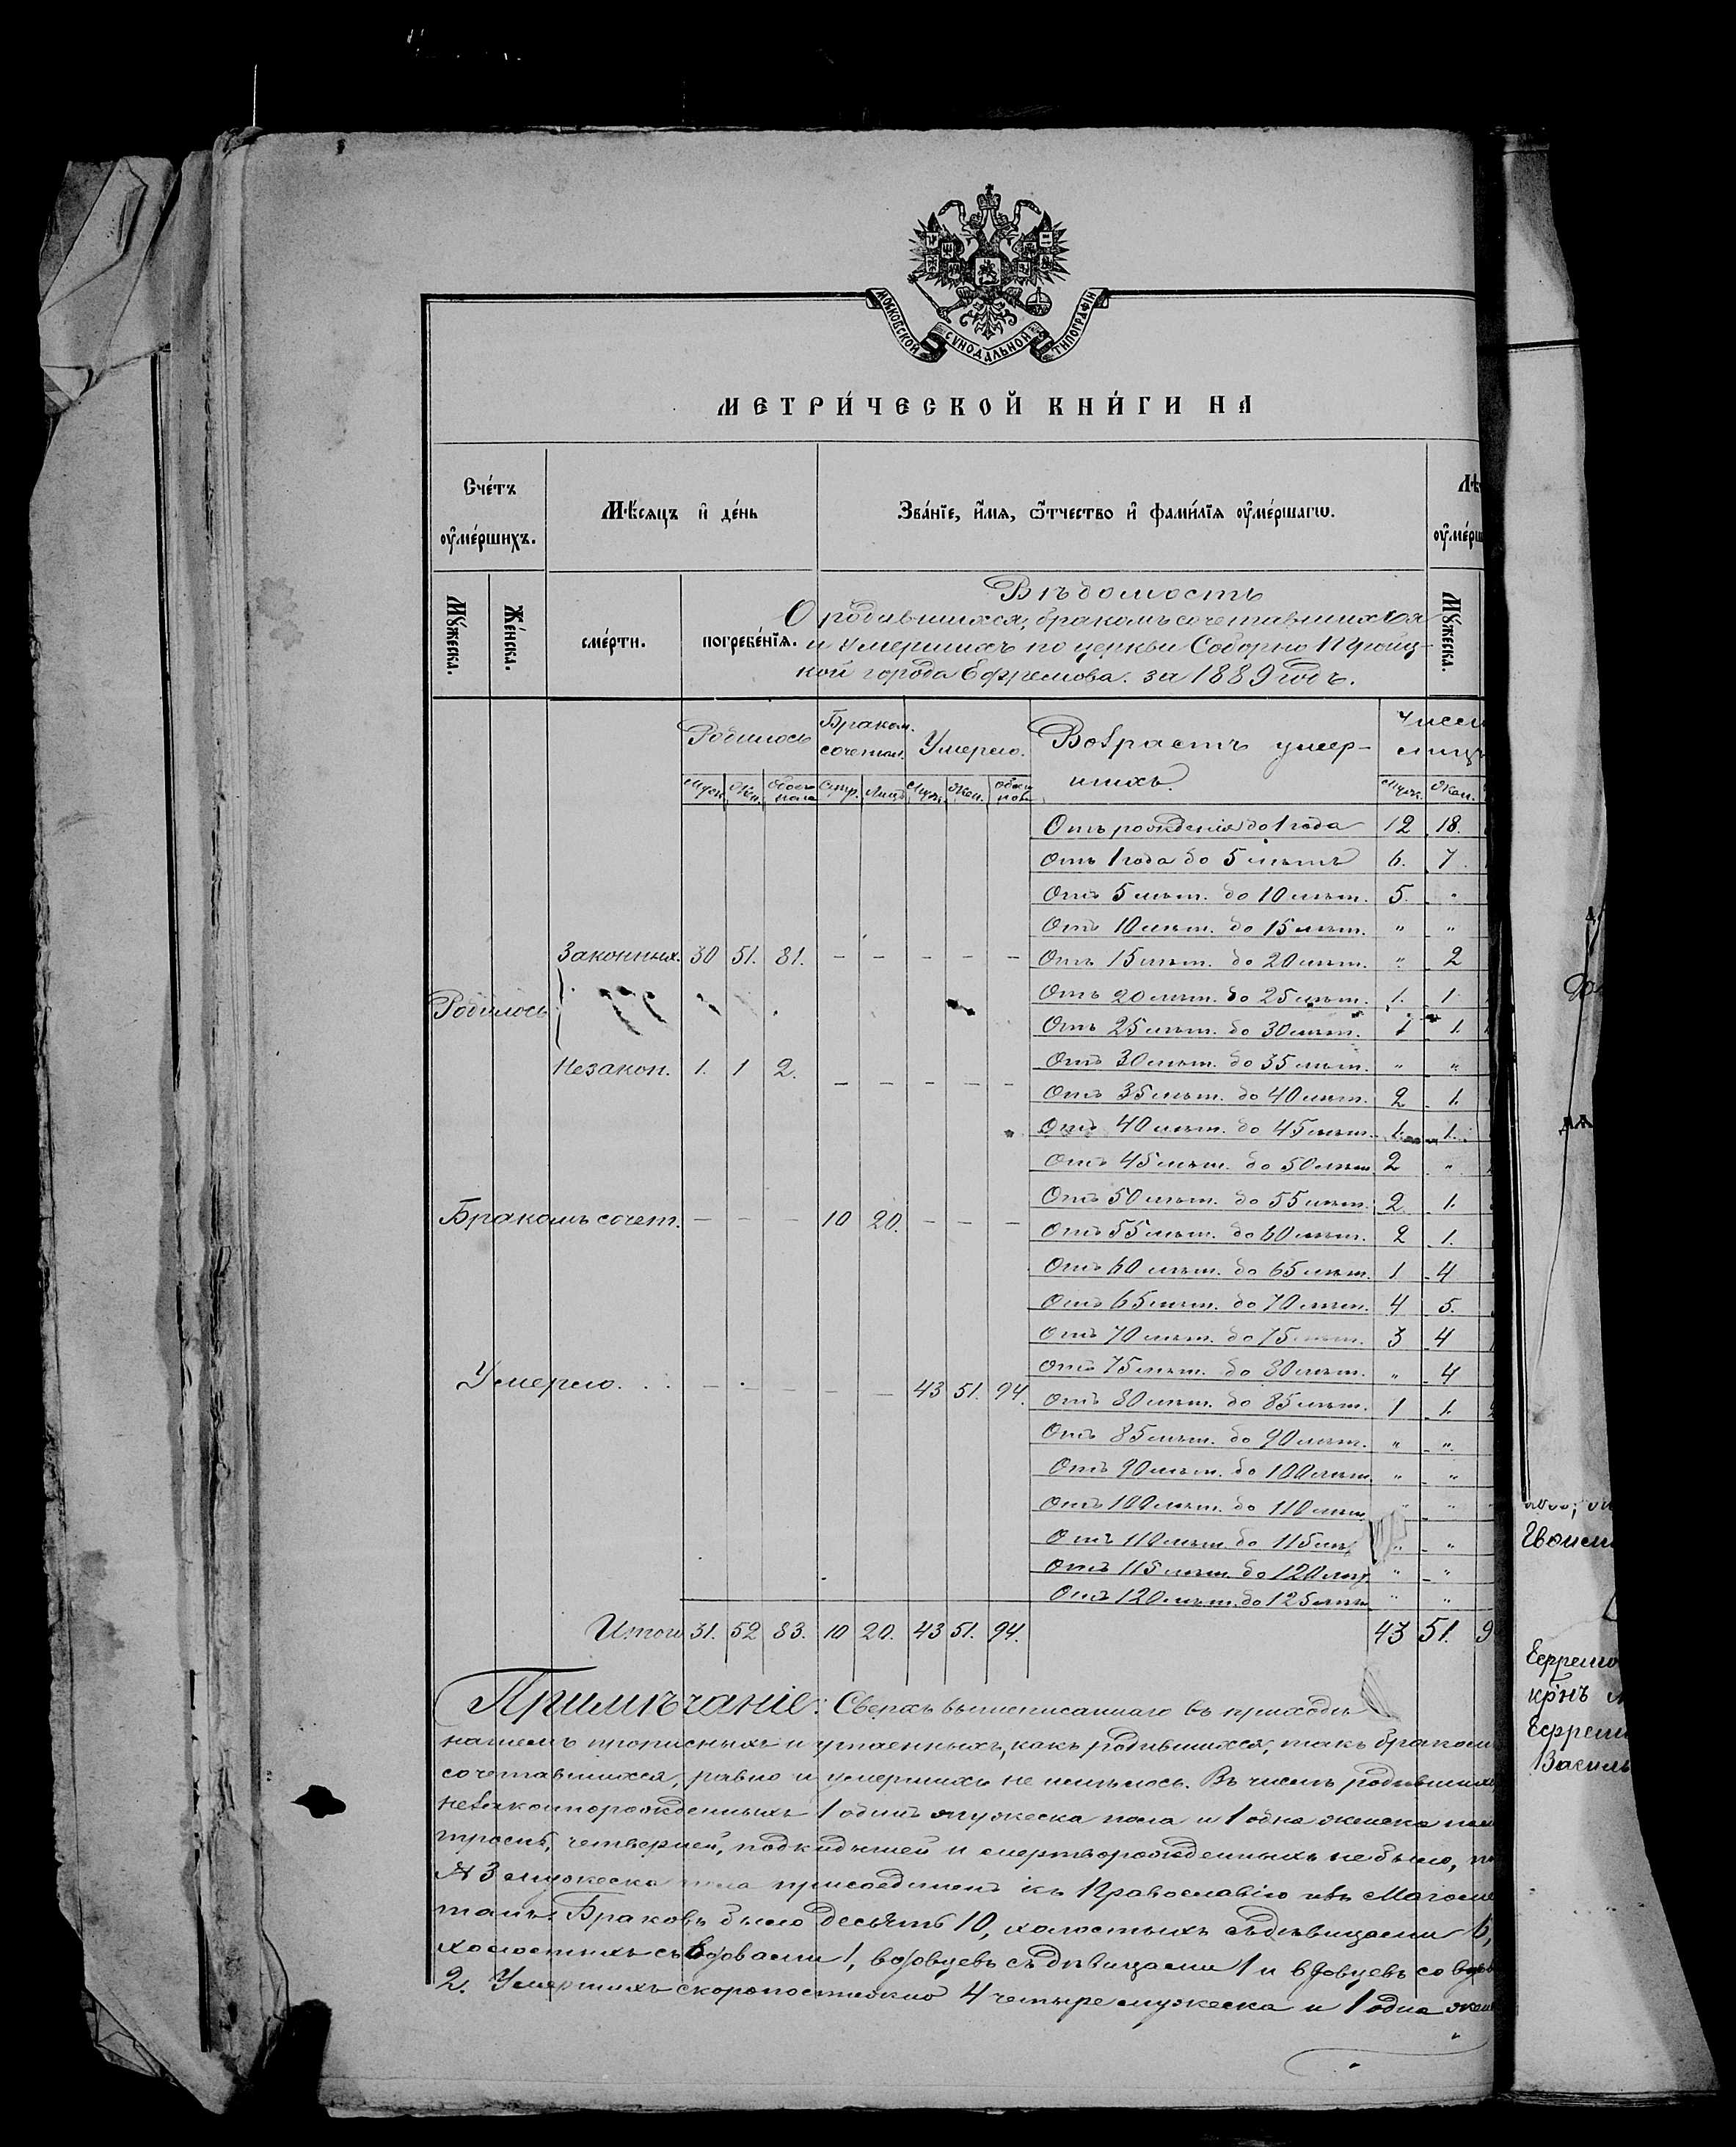 МОСКОВСКОЙ СѴНОДАЛЬНОЙ ТИПОГРАФІИ
МЕТРИ́ЧЕСКОЙ КНИ́ГИ НА
Сче́тъ оу҆ме́ршихъ.
Мѣ́сяцъ и҆ де́нь
Зва́нїе, и҆́мя, ѻ҆́тчество и҆ фами́лїя оу҆ме́ршагѡ.
Лѣ
оу҆ме́рш
Мꙋ́жеска.
Же́нска.
сме́рти.
погребе́нїя.
Мꙋ́жеска.
Вѣдомость
О родившихся, бракомъ сочетавшихся
и умершихъ по церкви Соборно Троиц-
кой города Ефремова за 1889 годъ.
Родилось
Браком. сочетал.
Умерло.
Возрастъ умер-
шихъ.
Число
лицъ
Муж. Жен. Обоего пола Супр. Лицъ Муж. Жен. Обоего пола
Муж. Жен.
Отъ рожденія до 1 года 12 18.
Отъ 1 года до 5 лѣтъ 6. 7.
Отъ 5 лѣт. до 10 лѣт. 5. "
Отъ 10 лѣт. до 15 лѣт. " "
Законных. 30 51. 81. – – – – –
Отъ 15 лѣт. до 20 лѣт. " 2
Родилось
Отъ 20 лѣт. до 25 лѣт. 1. 1.
Отъ 25 лѣт. до 30 лѣт. 1 1.
Незакон. 1. 1 2. – – – – –
Отъ 30 лѣт. до 35 лѣт. " "
Отъ 35 лѣт. до 40 лѣт. 2 1.
Отъ 40 лѣт. до 45 лѣт. 1. 1.
Отъ 45 лѣт. до 50 лѣт 2 "
Отъ 50 лѣт. до 55 лѣт. 2 1.
Бракомъ сочет. – – – 10 20. – – –
Отъ 55 лѣт. до 60 лѣт. 2 1.
Отъ 60 лѣт. до 65 лѣт. 1 4
Отъ 65 лѣт. до 70 лѣт. 4 5.
Отъ 70 лѣт. до 75 лѣт. 3 4
Отъ 75 лѣт. до 80 лѣт. " 4
Умерло. . . – – – – – 43 51. 94.
Отъ 80 лѣт. до 85 лѣт. 1 1.
Отъ 85 лѣт. до 90 лѣт. " "
Отъ 90 лѣт. до 100 лѣт. " "
Отъ 100 лѣт. до 110 лѣт " "
Отъ 110 лѣт. до 115 лѣт " "
Отъ 115 лѣт. до 120 лѣт. " "
Отъ 120 лѣт. до 125 лѣтъ " "
Итого 31. 52 83. 10 20. 43 51. 94. 43 51. 9
Примѣчаніе: Сверхъ вышеписаннаго въ приходѣ
нашемъ прописныхъ и утаенныхъ, какъ родившихся, такъ браком
сочетавшихся, равно и умершихъ не имѣлось. Въ числѣ родившихъ
незаконнорожденныхъ 1 одинъ мужеска пола и 1 одна женска пола
троенъ, четверней, подкидышей и мертворожденныхъ не было,
3 мужеска пола присоединенъ къ Православію изъ Магоме
танъ. Браковъ было десять 10, холостыхъ съ дѣвицами 6,
холостыхъ съ вдовами 1, вдовцевъ съ дѣвицами 1 и вдовцевъ со вдов
2. Умершихъ скоропостижно 4 четыре мужеска и 1 одна жен
Ефремо
крнъ
Ефрем
Василь